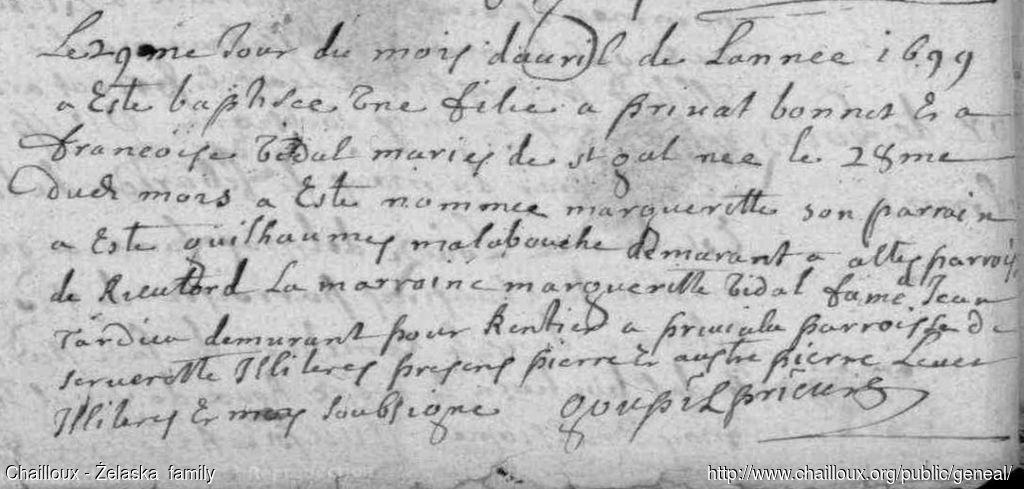 Le 29me Jour du mois dauril de Lannee 1699
a Este baptisee Vne filie a priuat bonnet Et a
francoise Vidal maries de st gal nee le 28me
dud mois a Este nommee margueritte son parrain
a Este guilhaumes malabouche demurant a altes parroisse
de Rieutord La marraine margueritte Vidal fame Jean
Tardieu demurant pour Rentier a priuiala parroisse de
seruerette Illiteres presens pierre Et austre pierre
Illiteres Et moy soubsigne goupil prieur
Chailloux - Želaska family
http://www.chailloux.org/public/geneal/